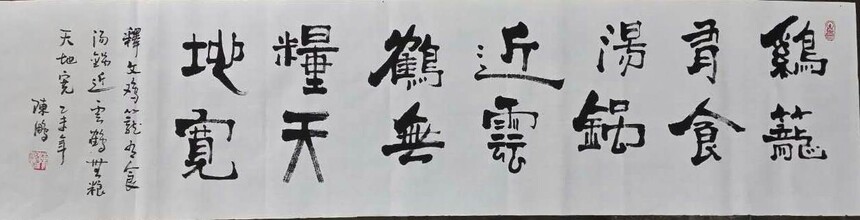 鷄籠
有食
湯鍋
近雲
鶴無
糧天
地寬
釋文鸡籠有食
汤鍋近云鹤無粮
天地宽乙未年
陳